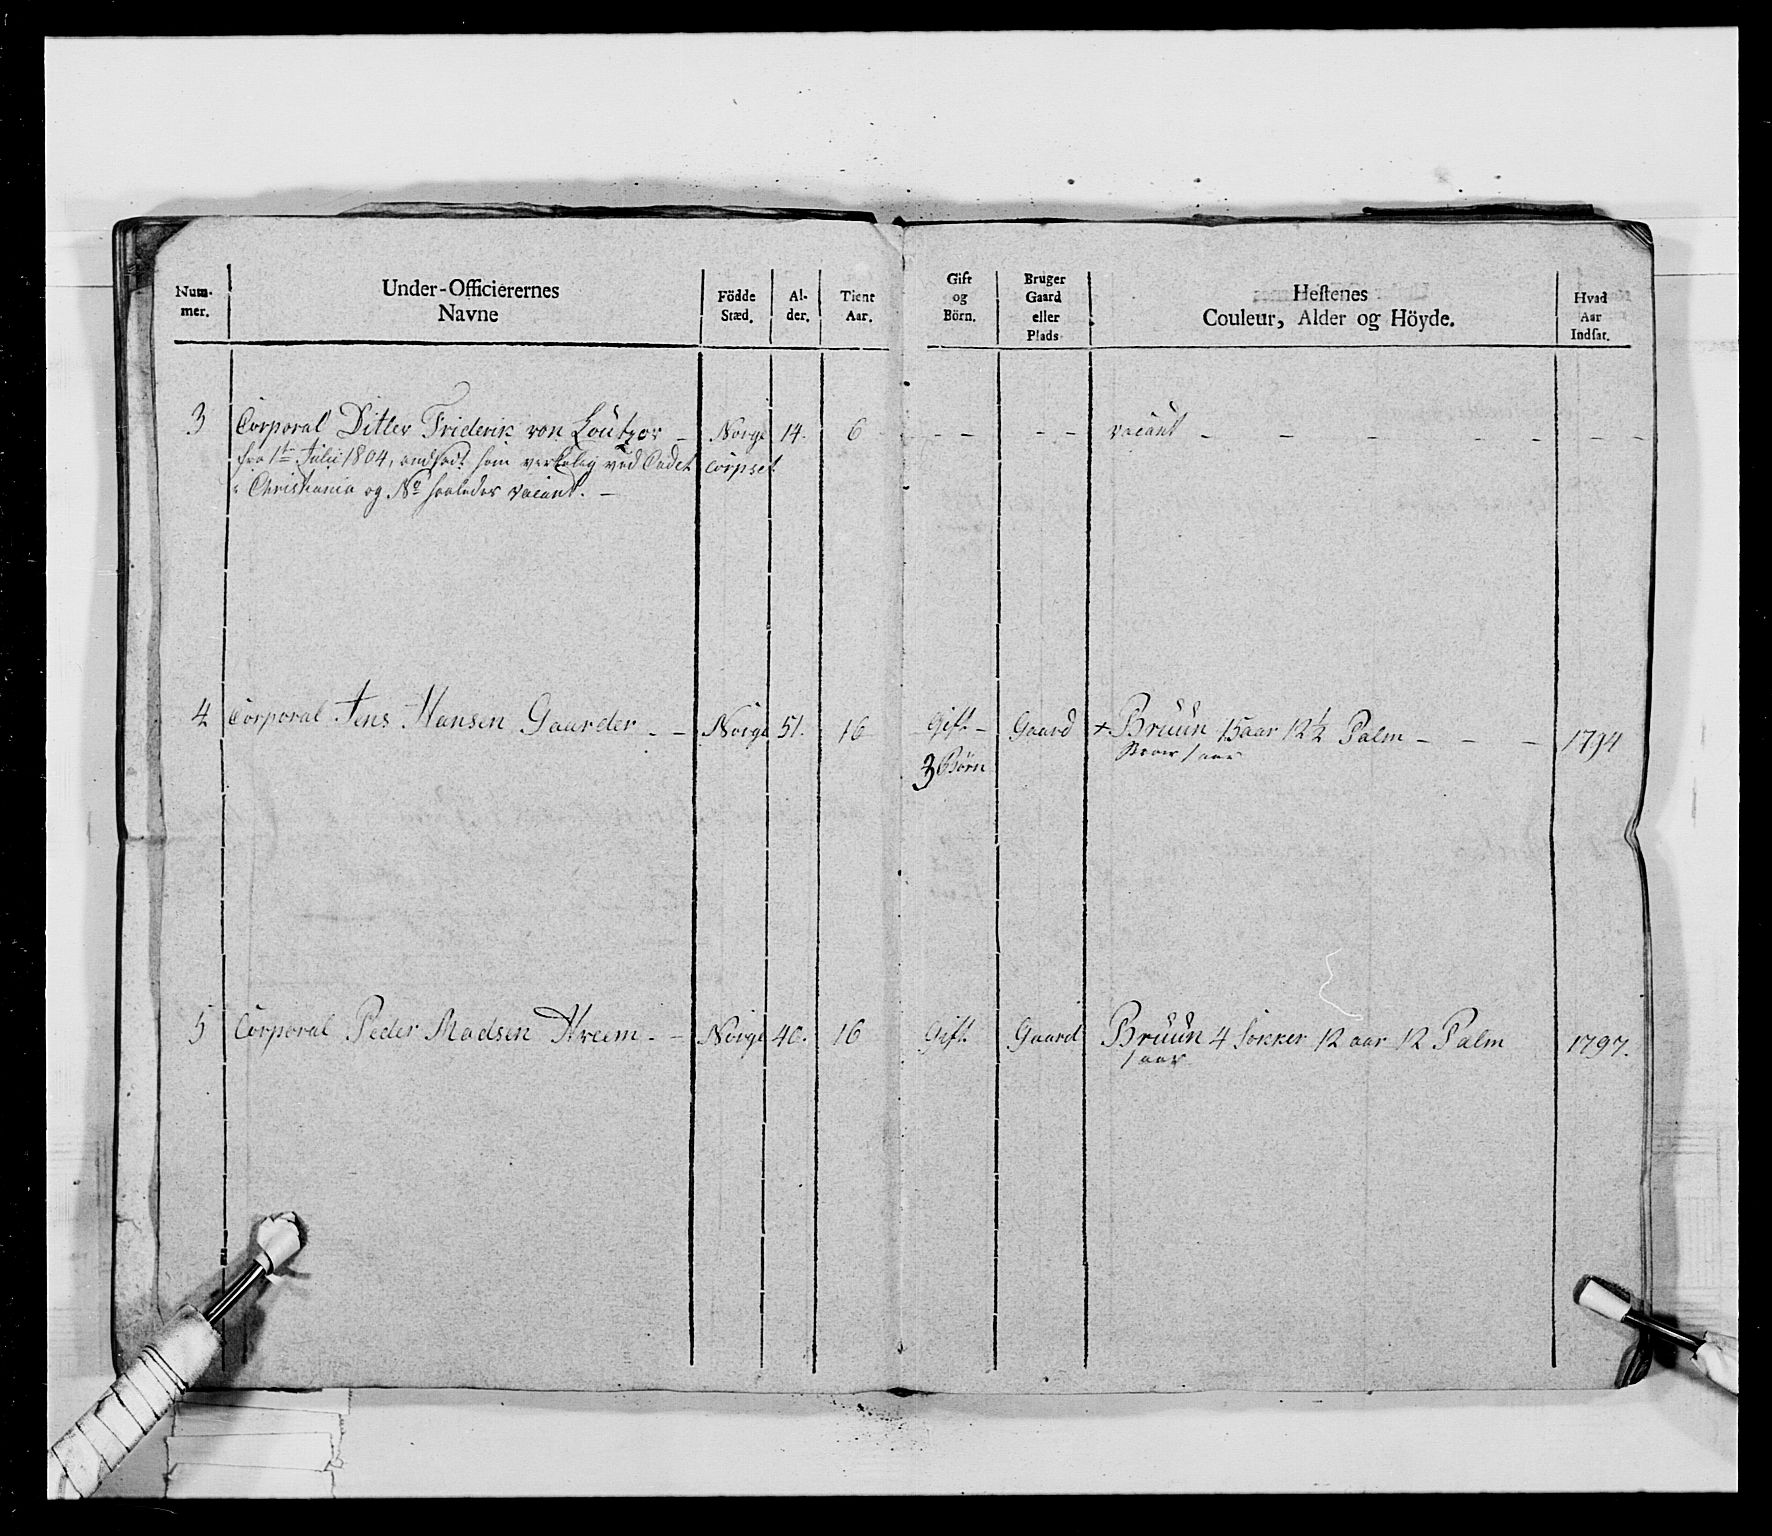 Num-
mer.
Under-Officierernes
Navne
Födde
Stæd.
Al-
der.
Tient
Aar.
Gift
og
Börn.
Bruger
Gaard
eller
Plads
Hestenes
Couleur, Alder og Höyde.
Hvad
Aar
Indsat.
3 Corporal Ditlev Friderik von - Norge 14. 6 - - - - vacant - - - - - - -
fra 1te Julii 1804, ansat som virkelig ved Cadet Corpset
i Christiania og No saaledes vacant. -
4 Corporal Jens Hansen Gaarder - - Norge 51. 16 Gift - Gaard + Bruun 15 aar 12½ Palm - - - 1794
3 Börn
5 Corporal Peder Madsen - - Norge 40. 16 Gift Gaard Bruun 4 Sokker 12 aar 12 Palm 1797.